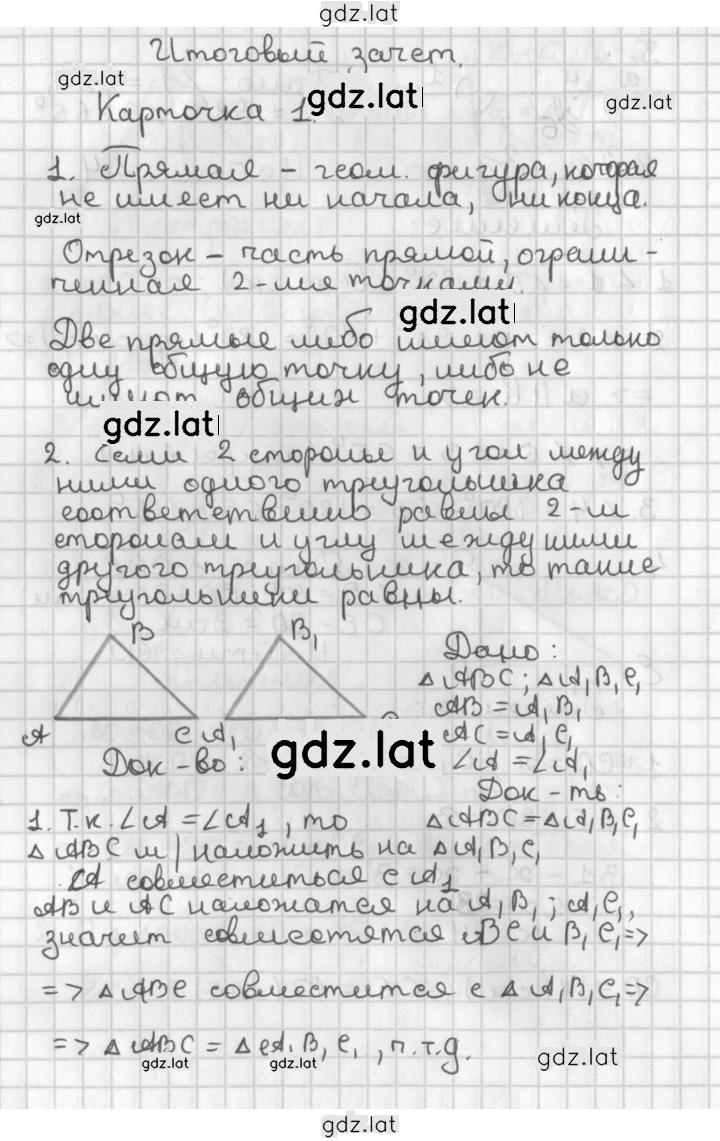 gdz.lat
Итоговый зачет.
gdz.lat
gdz.lat
gdz.lat
Карточка 1.
1. Прямая - геом. фигура, которая
не имеет ни начала, ни конца.
gdz.lat
Отрезок - часть прямой, ограни-
ченная 2-мя точками.
gdz.lat
Две прямые либо имеют только
одну общую точку, либо не
имеют общих точек.
gdz.lat
2. Если 2 стороны и угол между
ними одного треугольника
соответственно равны 2-м
сторонам и углу между ними
другого треугольника, то такие
треугольники равны.
B B₁
Дано:
△ABC; △A₁B₁C₁
AB = A₁B₁
A C A₁
AC = A₁C₁
gdz.lat
Док-во:
∠A = ∠A₁
Док-ть:
1. Т.к. ∠A = ∠A₁, то
△ABC = △A₁B₁C₁
△ABC м| наложить на △A₁B₁C₁
∠A совместиться с A₁
AB и AC наложатся на A₁B₁; A₁C₁,
значит совместятся BC и B₁C₁ =>
=> △ABC совместится с △A₁B₁C₁ =>
=> △ABC = △A₁B₁C₁, ч.т.д.
gdz.lat
gdz.lat
gdz.lat
gdz.lat